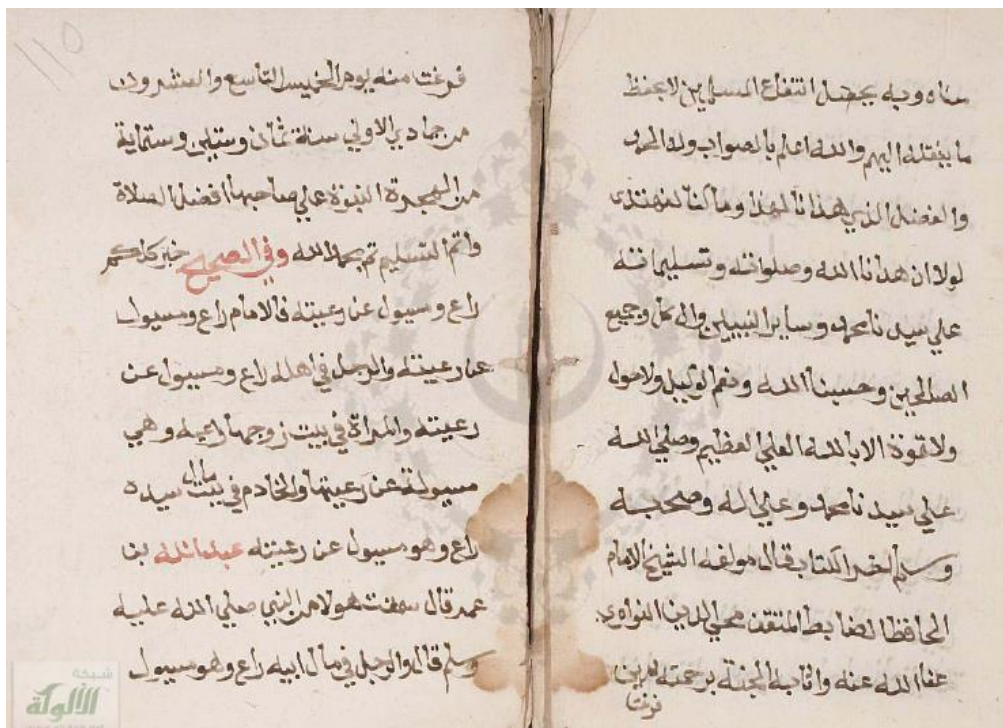 معناه وبه يحصل انتفاع المسلمين لا بحفظ
ما ينقله اليهم والله اعلم بالصواب وله الحمد
والفضل الذي هدانا لهذا وما كنا لنهتدى
لولا ان هدانا الله وصلواته وتسليماته
علي سيدنا محمد وساير النبيين وال كل وجميع
الصالحين وحسبنا الله ونعم الوكيل ولا حول
ولا قوة الا بالله العلي العظيم وصلي الله
علي سيدنا محمد وعلي اله وصحبه
وسلم اخر الكتاب قال مولفه الشيخ الامام
الحافظ الضابط المتقن محيي الدين النواوي
عفا الله عنه واثابه الجنة برحمته امين
فرغت
١١٥
فرغت منه يوم الخميس التاسع والعشرون
من جمادي الاولي سنة ثمان وستين وستماية
من الهجرة النبوة علي صاحبها افضل الصلاة
واتم التسليم تم بحمد الله وفي الصحيح خبر كلكم
راع ومسيول عن رعيته فالامام راع ومسيول
عن رعيته والرجل في اهله راع ومسيول عن
رعيته والمراة في بيت زوجها راعية وهي
مسيولة عن رعيتها والخادم في بيت مال سيده
راع وهو مسيول عن رعيته عبد الله بن
عمر قال سمعت هولا من النبي صلي الله عليه
وسلم قال والرجل في مال ابيه راع وهو مسيول
شبكة
الألوكة